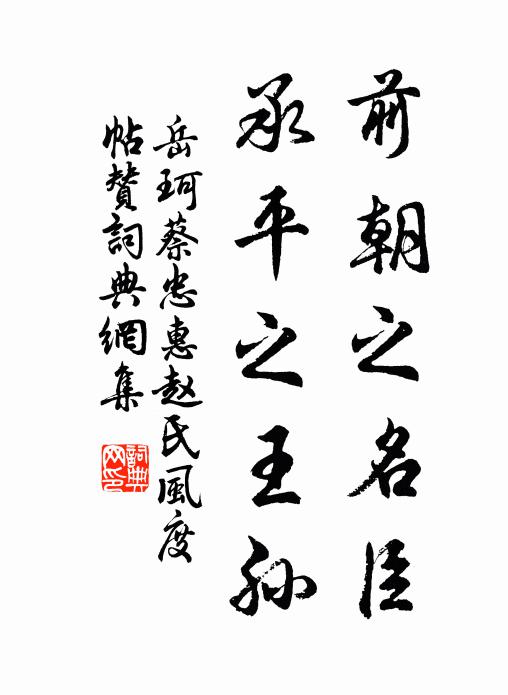 前朝之名臣
承平之王孙
岳珂蔡忠惠赵氏風度
帖贊詞典網集
詞典网印